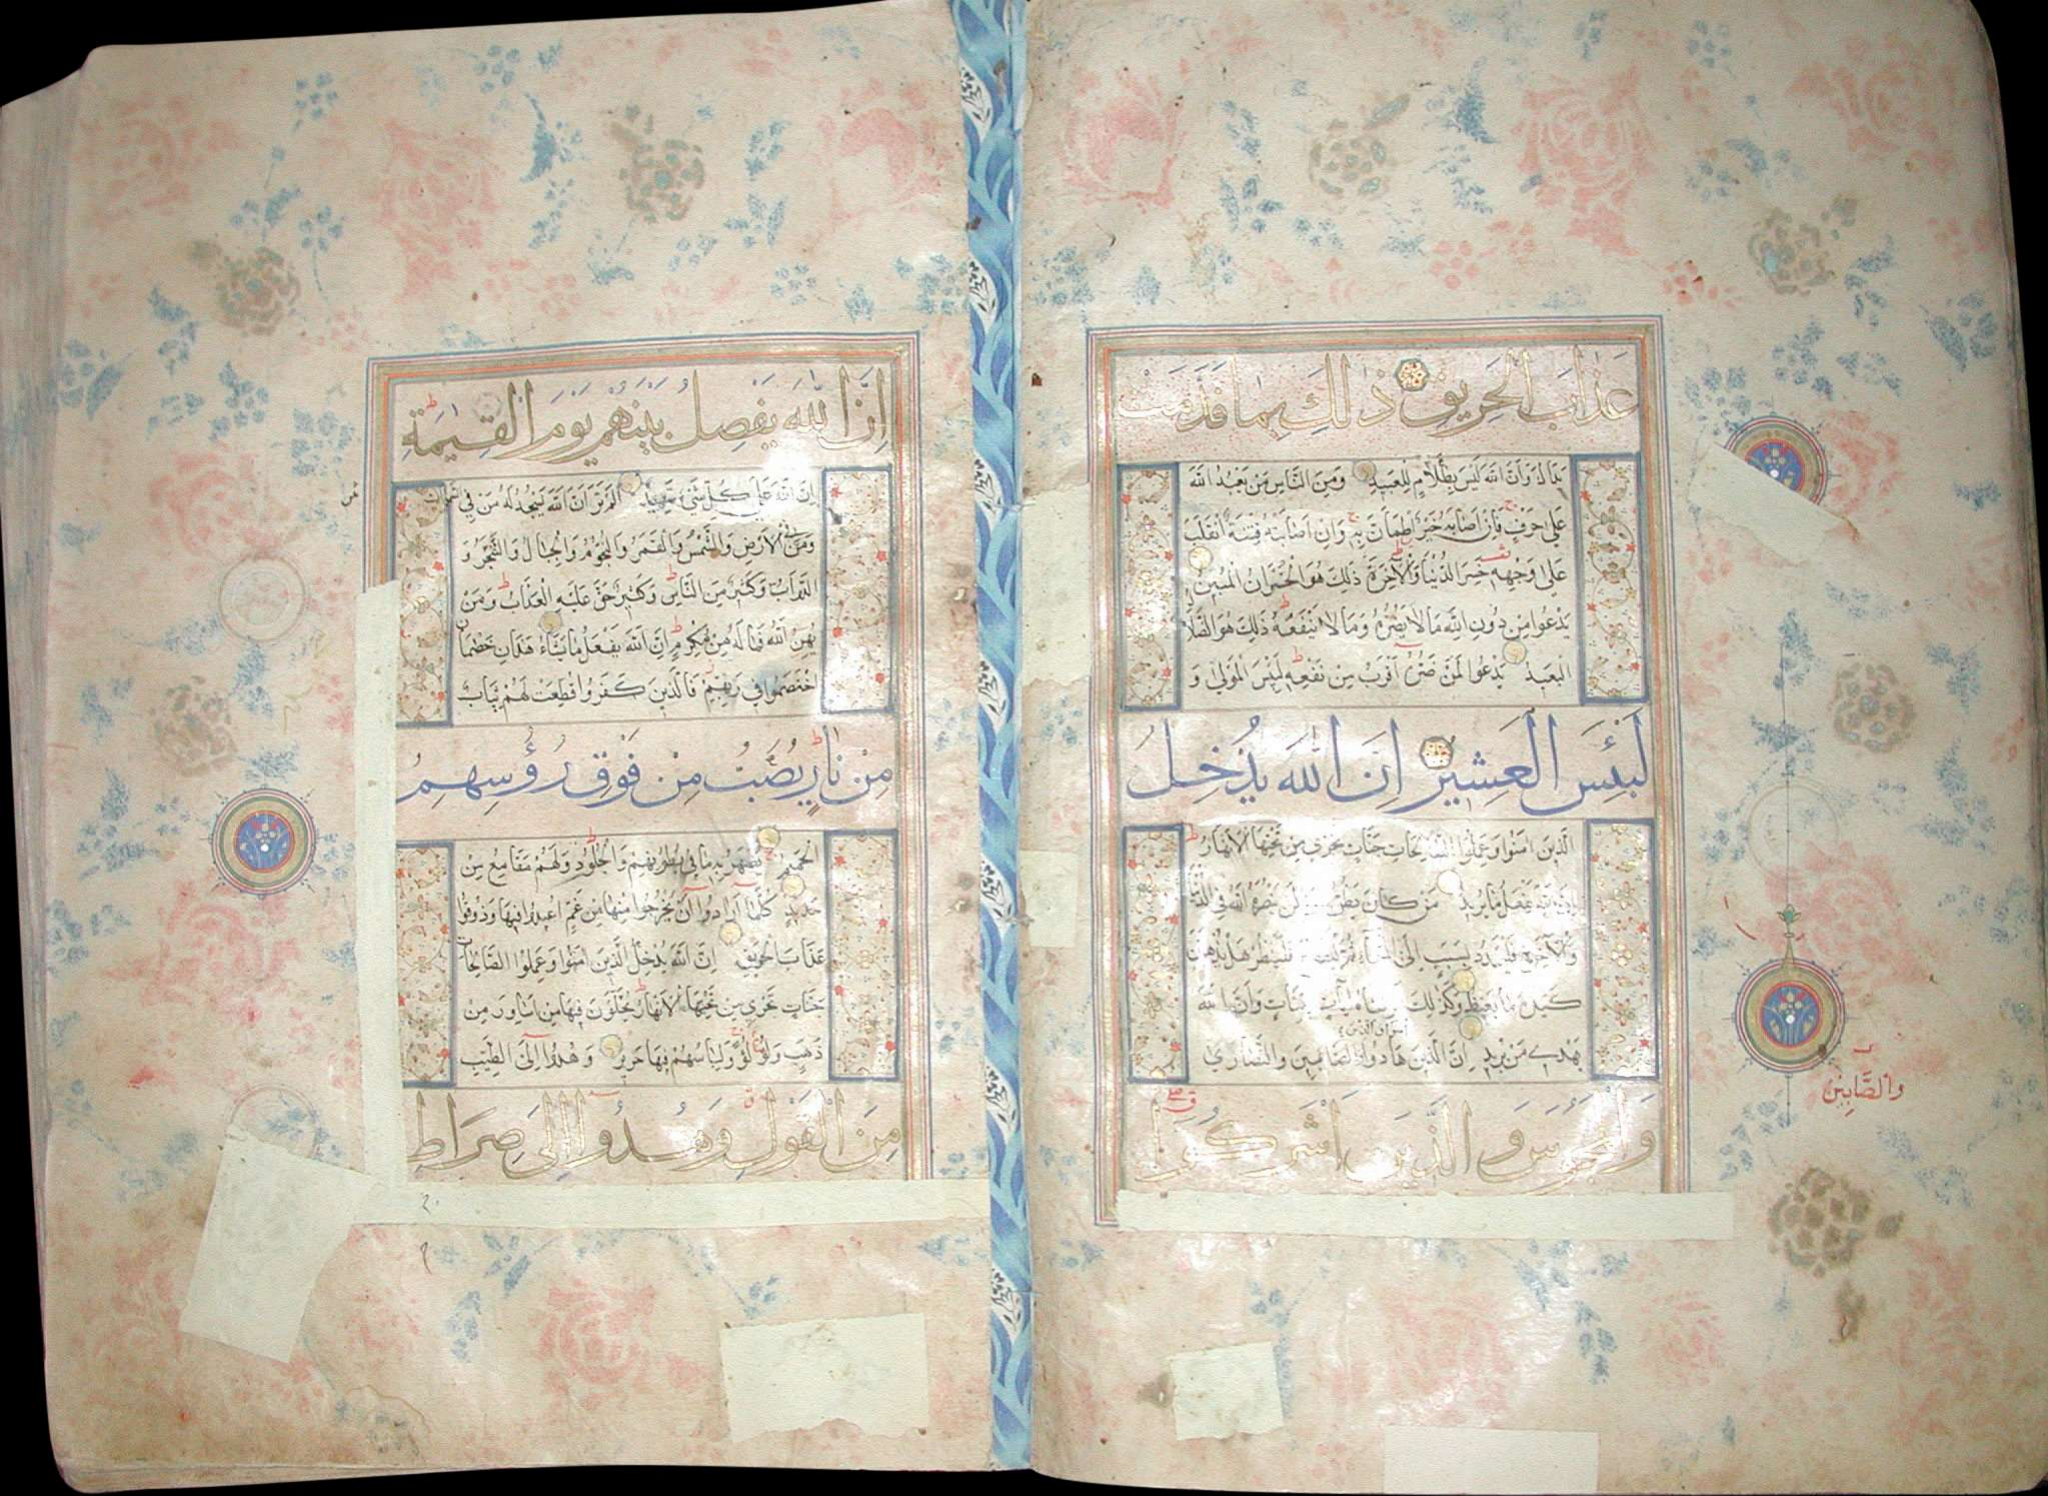 عَذَابَ الْحَرِيقِ ذَٰلِكَ بِمَا قَدَّمَتْ
يَدَاكَ وَأَنَّ اللَّهَ لَيْسَ بِظَلَّامٍ لِلْعَبِيدِ وَمِنَ النَّاسِ مَنْ يَعْبُدُ اللَّهَ
عَلَى حَرْفٍ فَإِنْ أَصَابَهُ خَيْرٌ اطْمَأَنَّ بِهِ وَإِنْ أَصَابَتْهُ فِتْنَةٌ انْقَلَبَ
عَلَى وَجْهِهِ خَسِرَ الدُّنْيَا وَالْآخِرَةَ ذَلِكَ هُوَ الْخُسْرَانُ الْمُبِينُ
يَدْعُوا مِنْ دُونِ اللَّهِ مَا لَا يَضُرُّهُ وَمَا لَا يَنْفَعُهُ ذَلِكَ هُوَ الضَّلَالُ
الْبَعِيدُ يَدْعُوا لَمَنْ ضَرُّهُ أَقْرَبُ مِنْ نَفْعِهِ لَبِئْسَ الْمَوْلَى وَ
لَبِئْسَ الْعَشِيرُ إِنَّ اللَّهَ يُدْخِلُ
الَّذِينَ آمَنُوا وَعَمِلُوا الصَّالِحَاتِ جَنَّاتٍ تَجْرِي مِنْ تَحْتِهَا الْأَنْهَارُ
إِنَّ اللَّهَ يَفْعَلُ مَا يُرِيدُ مَنْ كَانَ يَظُنُّ أَنْ لَنْ يَنْصُرَهُ اللَّهُ فِي الدُّنْيَا
وَالْآخِرَةِ فَلْيَمْدُدْ بِسَبَبٍ إِلَى السَّمَاءِ ثُمَّ لْيَقْطَعْ فَلْيَنْظُرْ هَلْ يُذْهِبَنَّ
كَيْدُهُ مَا يَغِيظُ وَكَذَلِكَ أَنْزَلْنَاهُ آيَاتٍ بَيِّنَاتٍ وَأَنَّ اللَّهَ
يَهْدِي مَنْ يُرِيدُ إِنَّ الَّذِينَ آمَنُوا وَالَّذِينَ هَادُوا وَالصَّابِئِينَ وَالنَّصَارَى
وَالْمَجُوسَ وَالَّذِينَ أَشْرَكُوا
وَالصَّابِينَ
إِنَّ اللَّهَ يَفْصِلُ بَيْنَهُمْ يَوْمَ الْقِيٰمَةِ
إِنَّ اللَّهَ عَلَى كُلِّ شَيْءٍ شَهِيدٌ أَلَمْ تَرَ أَنَّ اللَّهَ يَسْجُدُ لَهُ مَنْ فِي السَّمَوَاتِ
وَمَنْ فِي الْأَرْضِ وَالشَّمْسُ وَالْقَمَرُ وَالنُّجُومُ وَالْجِبَالُ وَالشَّجَرُ وَ
الدَّوَابُّ وَكَثِيرٌ مِنَ النَّاسِ وَكَثِيرٌ حَقَّ عَلَيْهِ الْعَذَابُ وَمَنْ
يُهِنِ اللَّهُ فَمَا لَهُ مِنْ مُكْرِمٍ إِنَّ اللَّهَ يَفْعَلُ مَا يَشَاءُ هَذَانِ خَصْمَانِ
اخْتَصَمُوا فِي رَبِّهِمْ فَالَّذِينَ كَفَرُوا قُطِّعَتْ لَهُمْ ثِيَابٌ
مِنْ نَارٍ يُصَبُّ مِنْ فَوْقِ رُؤُسِهِمُ
الْحَمِيمُ يُصْهَرُ بِهِ مَا فِي بُطُونِهِمْ وَالْجُلُودُ وَلَهُمْ مَقَامِعُ مِنْ
حَدِيدٍ كُلَّمَا أَرَادُوا أَنْ يَخْرُجُوا مِنْهَا مِنْ غَمٍّ أُعِيدُوا فِيهَا وَذُوقُوا
عَذَابَ الْحَرِيقِ إِنَّ اللَّهَ يُدْخِلُ الَّذِينَ آمَنُوا وَعَمِلُوا الصَّالِحَاتِ
جَنَّاتٍ تَجْرِي مِنْ تَحْتِهَا الْأَنْهَارُ يُحَلَّوْنَ فِيهَا مِنْ أَسَاوِرَ مِنْ
ذَهَبٍ وَلُؤْلُؤًا وَلِبَاسُهُمْ فِيهَا حَرِيرٌ وَهُدُوا إِلَى الطَّيِّبِ
مِنَ الْقَوْلِ وَهُدُوا إِلَى صِرَاطِ